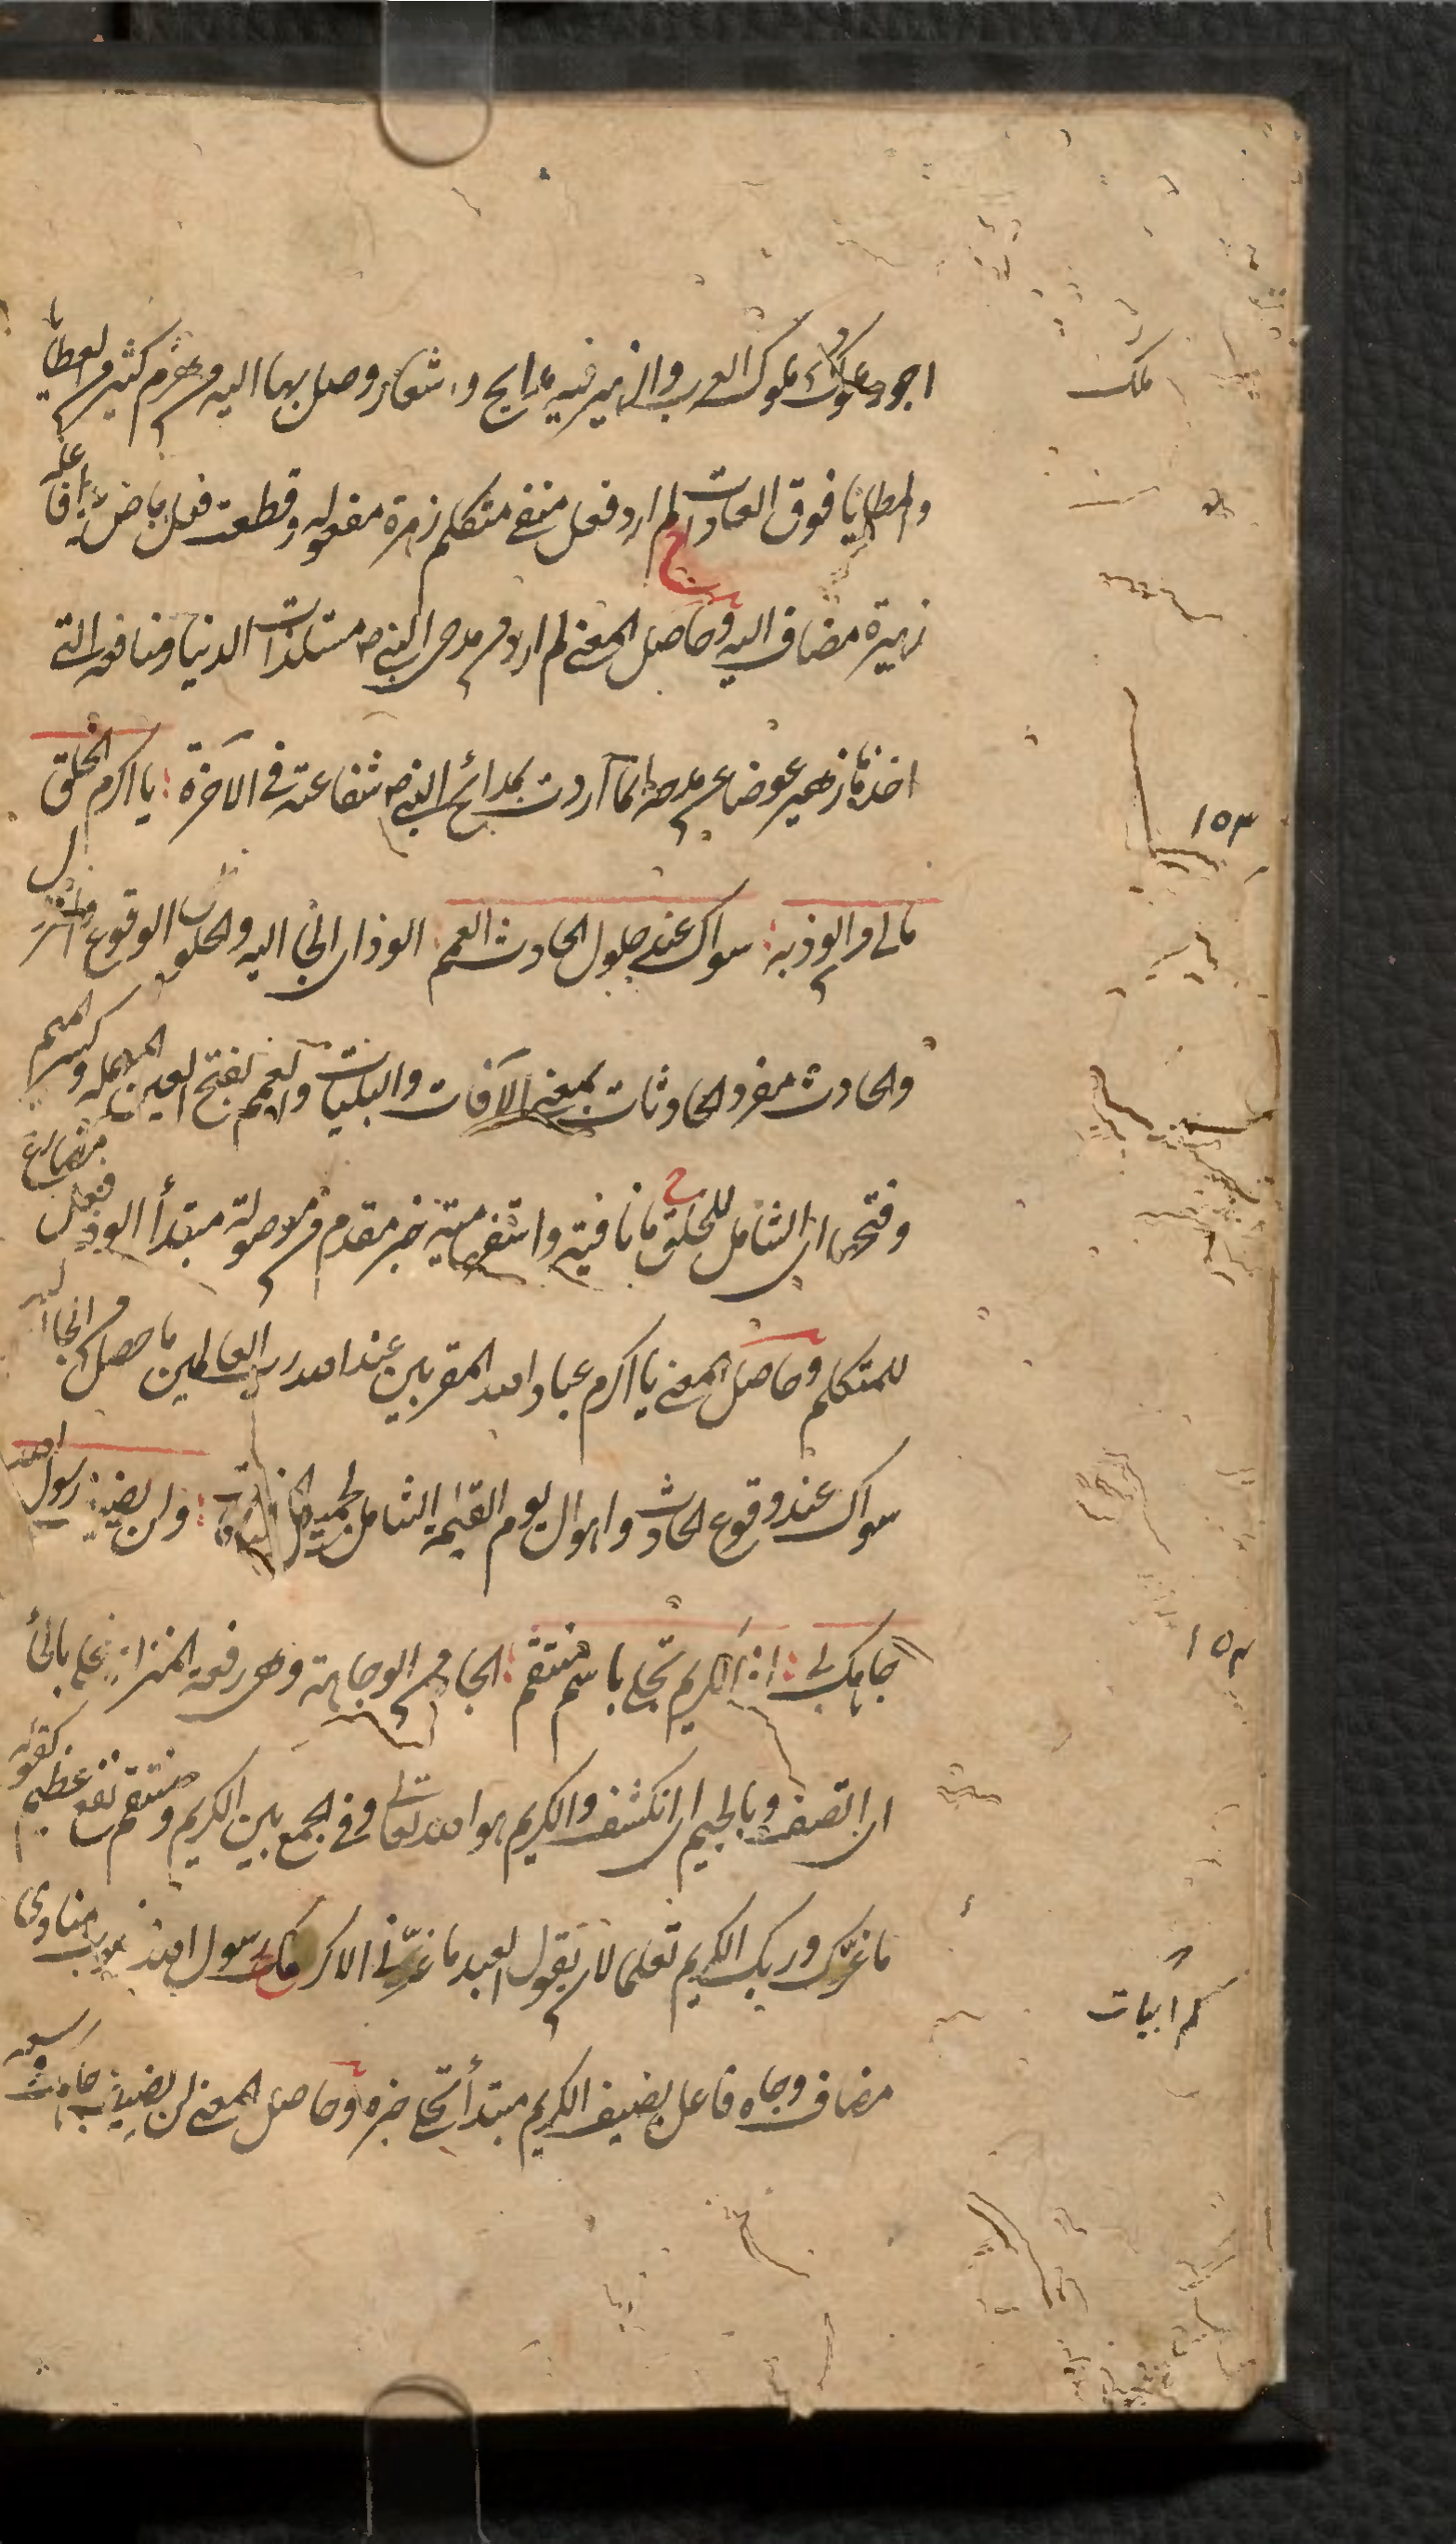 اجود ملوك العرب والزهير فيه مدايح واشعار وصل بها اليه من هرم كثير من العطايا
والمطايا فوق العادات لم ارد فعل منفي متكلم زهرة مفعوله وقطعت فعل ماض يدا فاعله
زهيرة مضاف اليه وحاصل المعنى لم ارد من مدحي النبي ص مستلذات الدنيا ومنافعه التي
اخذها زهير عوضا عن مدحه انما اردت بمدائح النبي ص شفاعته في الآخرة يا اكرم الخلق
مالي من الوذ به سواك عند حلول الحادث العمم الوذ اي التجا اليه والحلول الوقوع والنزول
والحادث مفرد الحادثات بمعنى الآفات والبليات والعمم بفتح العين المهملة وكسر الميم
وفتحها اي الشامل للخلق ما نافية واستفهامية خبر مقدم من موصولة مبتدأ الوذ فعل مضارع
للمتكلم وحاصل المعنى يا اكرم عباد الله المقربين عند الله رب العالمين ما حصل من التجا اليه
سواك عند وقوع الحادث واهوال يوم القيمة الشامل لجميع المخلوقات ولن يضيق رسول الله
جاهك بي اذ الكريم تحلى باسم منتقم الجاه من الوجاهة وهي رفعة المنزلة تحلى بالحاء
اي اتصف وبالجيم اي انكشف والكريم هو الله تعالى وفي الجمع بين الكريم ومنتقم نفع عظيم كقوله
ما غرك بربك الكريم تعليما لان يقول العبد ما غرني الا كرمك رسول الله منصوب منادى
مضاف وجاه فاعل يضيق الكريم مبتدأ تحلى خبره وحاصل المعنى لن يضيق جاهك وسعة
ملك
١٥٣
١٥٤
كم ابيات